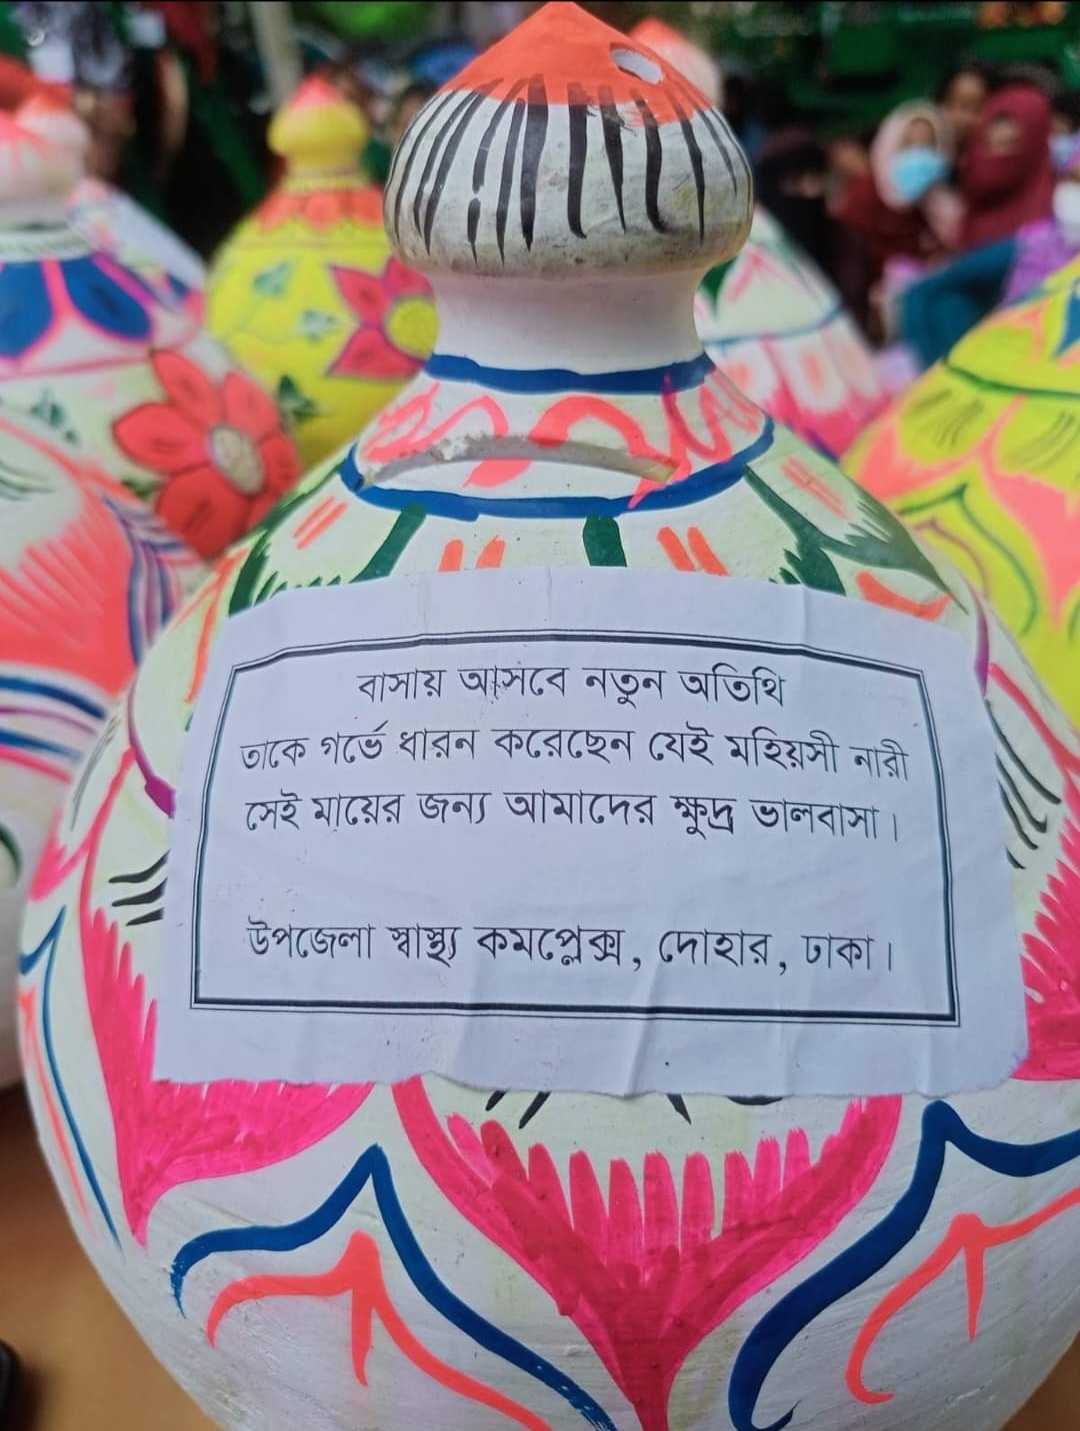 বাসায় আসবে নতুন অতিথি
তাকে গর্ভে ধারন করেছেন যেই মহিয়সী নারী
সেই মায়ের জন্য আমাদের ক্ষুদ্র ভালবাসা।
উপজেলা স্বাস্থ্য কমপ্লেক্স, দোহার, ঢাকা।